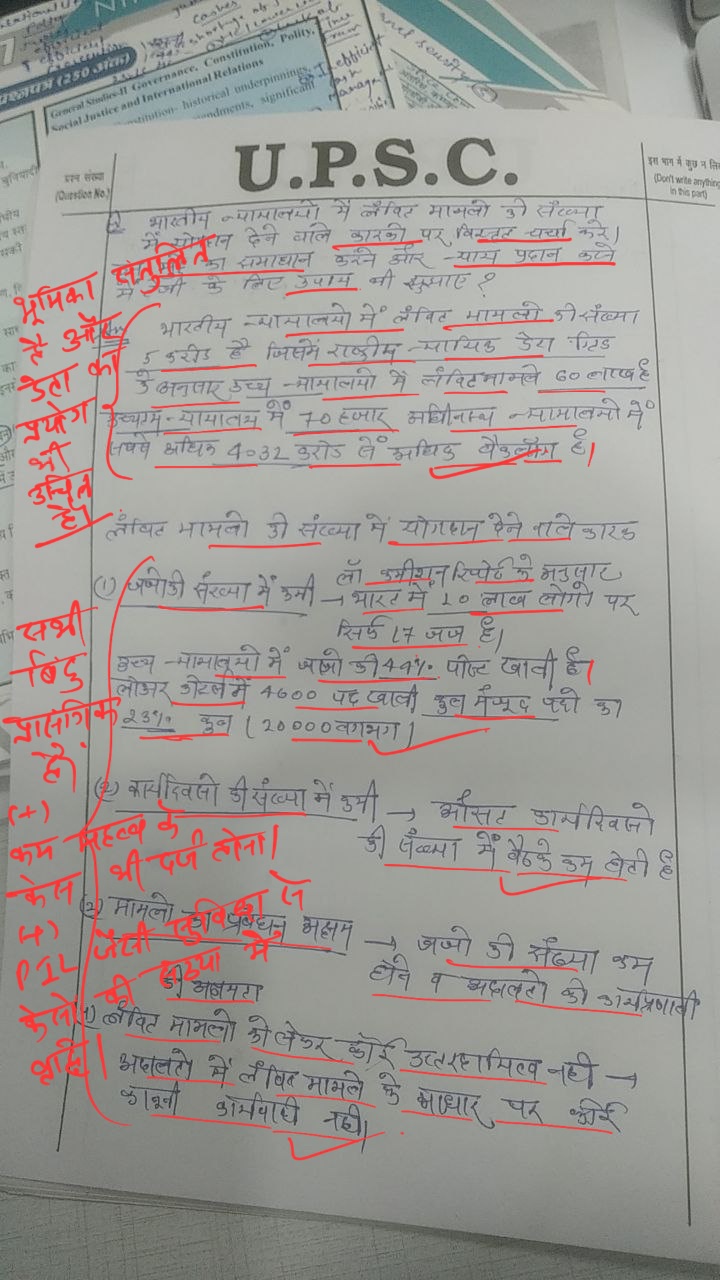 प्रश्नपत्र (250 अंक)
General Studies-II Governance, Constitution, Polity,
Social Justice and International Relations
constitution- historical underpinnings,
amendments, significant
U.P.S.C.
प्रश्न संख्या
(Question No.)
इस भाग में कुछ न लिखें
(Don't write anything
in this part)
Q भारतीय न्यायालयों में लंबित मामलों की संख्या
में योगदान देने वाले कारकों पर विस्तृत चर्चा करे।
का समाधान करने और न्याय प्रदान करने
में तेजी के लिए उपाय भी सुझाए ?
भूमिका संतुलित
है और
डेटा का
प्रयोग
भी
उचित
है।
भारतीय न्यायालयों में लंबित मामलों की संख्या
5 करोड है जिसमें राष्ट्रीय न्यायिक डेटा ग्रिड
के अनुसार उच्च न्यायालयों में लंबित मामले 60 लाख है
उच्चतम न्यायालय में 70 हजार अधीनस्थ न्यायालयों में
सबसे अधिक 4.32 करोड से अधिक बैकलॉग है।
लंबित मामलों की संख्या में योगदान देने वाले कारक
(1) जजो की संख्या में कमी → लॉ कमीशन रिपोर्ट के अनुसार
भारत में 10 लाख लोगो पर
सिर्फ 17 जज है।
उच्च न्यायालयों में जजो की 44% पोस्ट खाली है।
लोअर कोर्ट में 4600 पद खाली कुल मौजूद पदो का
23% कुल (20000 लगभग)
सभी
बिंदु
प्रासंगिक
है।
(+)
कम महत्व के
केस भी दर्ज होना।
(+)
PIL जैसी सुविधा से
केसो की संख्या में
वृद्धि।
(2) कार्यदिवसो की संख्या में कमी → औसत कार्यदिवसो
की संख्या में बैठके कम होती है
मामलो का प्रबंधन अक्षम → जजो की संख्या कम
होने व अदालतो की कार्यप्रणाली
की अक्षमता
लंबित मामलो को लेकर कोई उत्तरदायित्व नही →
अदालतो में लंबित मामले के आधार पर कोई
कानूनी कार्यवाही नही।